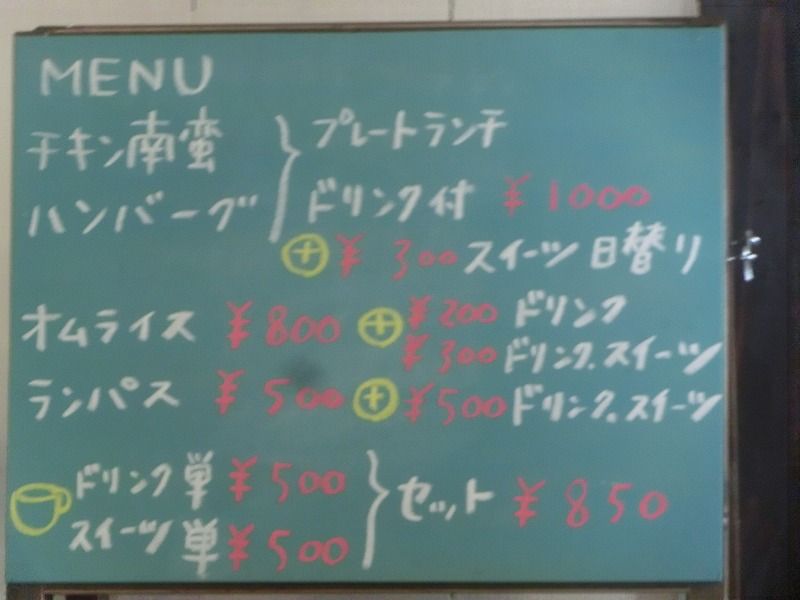 MENU
チキン南蛮 } プレートランチ
ハンバーグ ドリンク付 ¥1000
⊕ ¥300 スイーツ 日替り
オムライス ¥800 ⊕ ¥200 ドリンク
¥300 ドリンク.スイーツ
ランパス ¥500 ⊕ ¥500 ドリンク.スイーツ
ドリンク単 ¥500 } セット ¥850
スイーツ単 ¥500